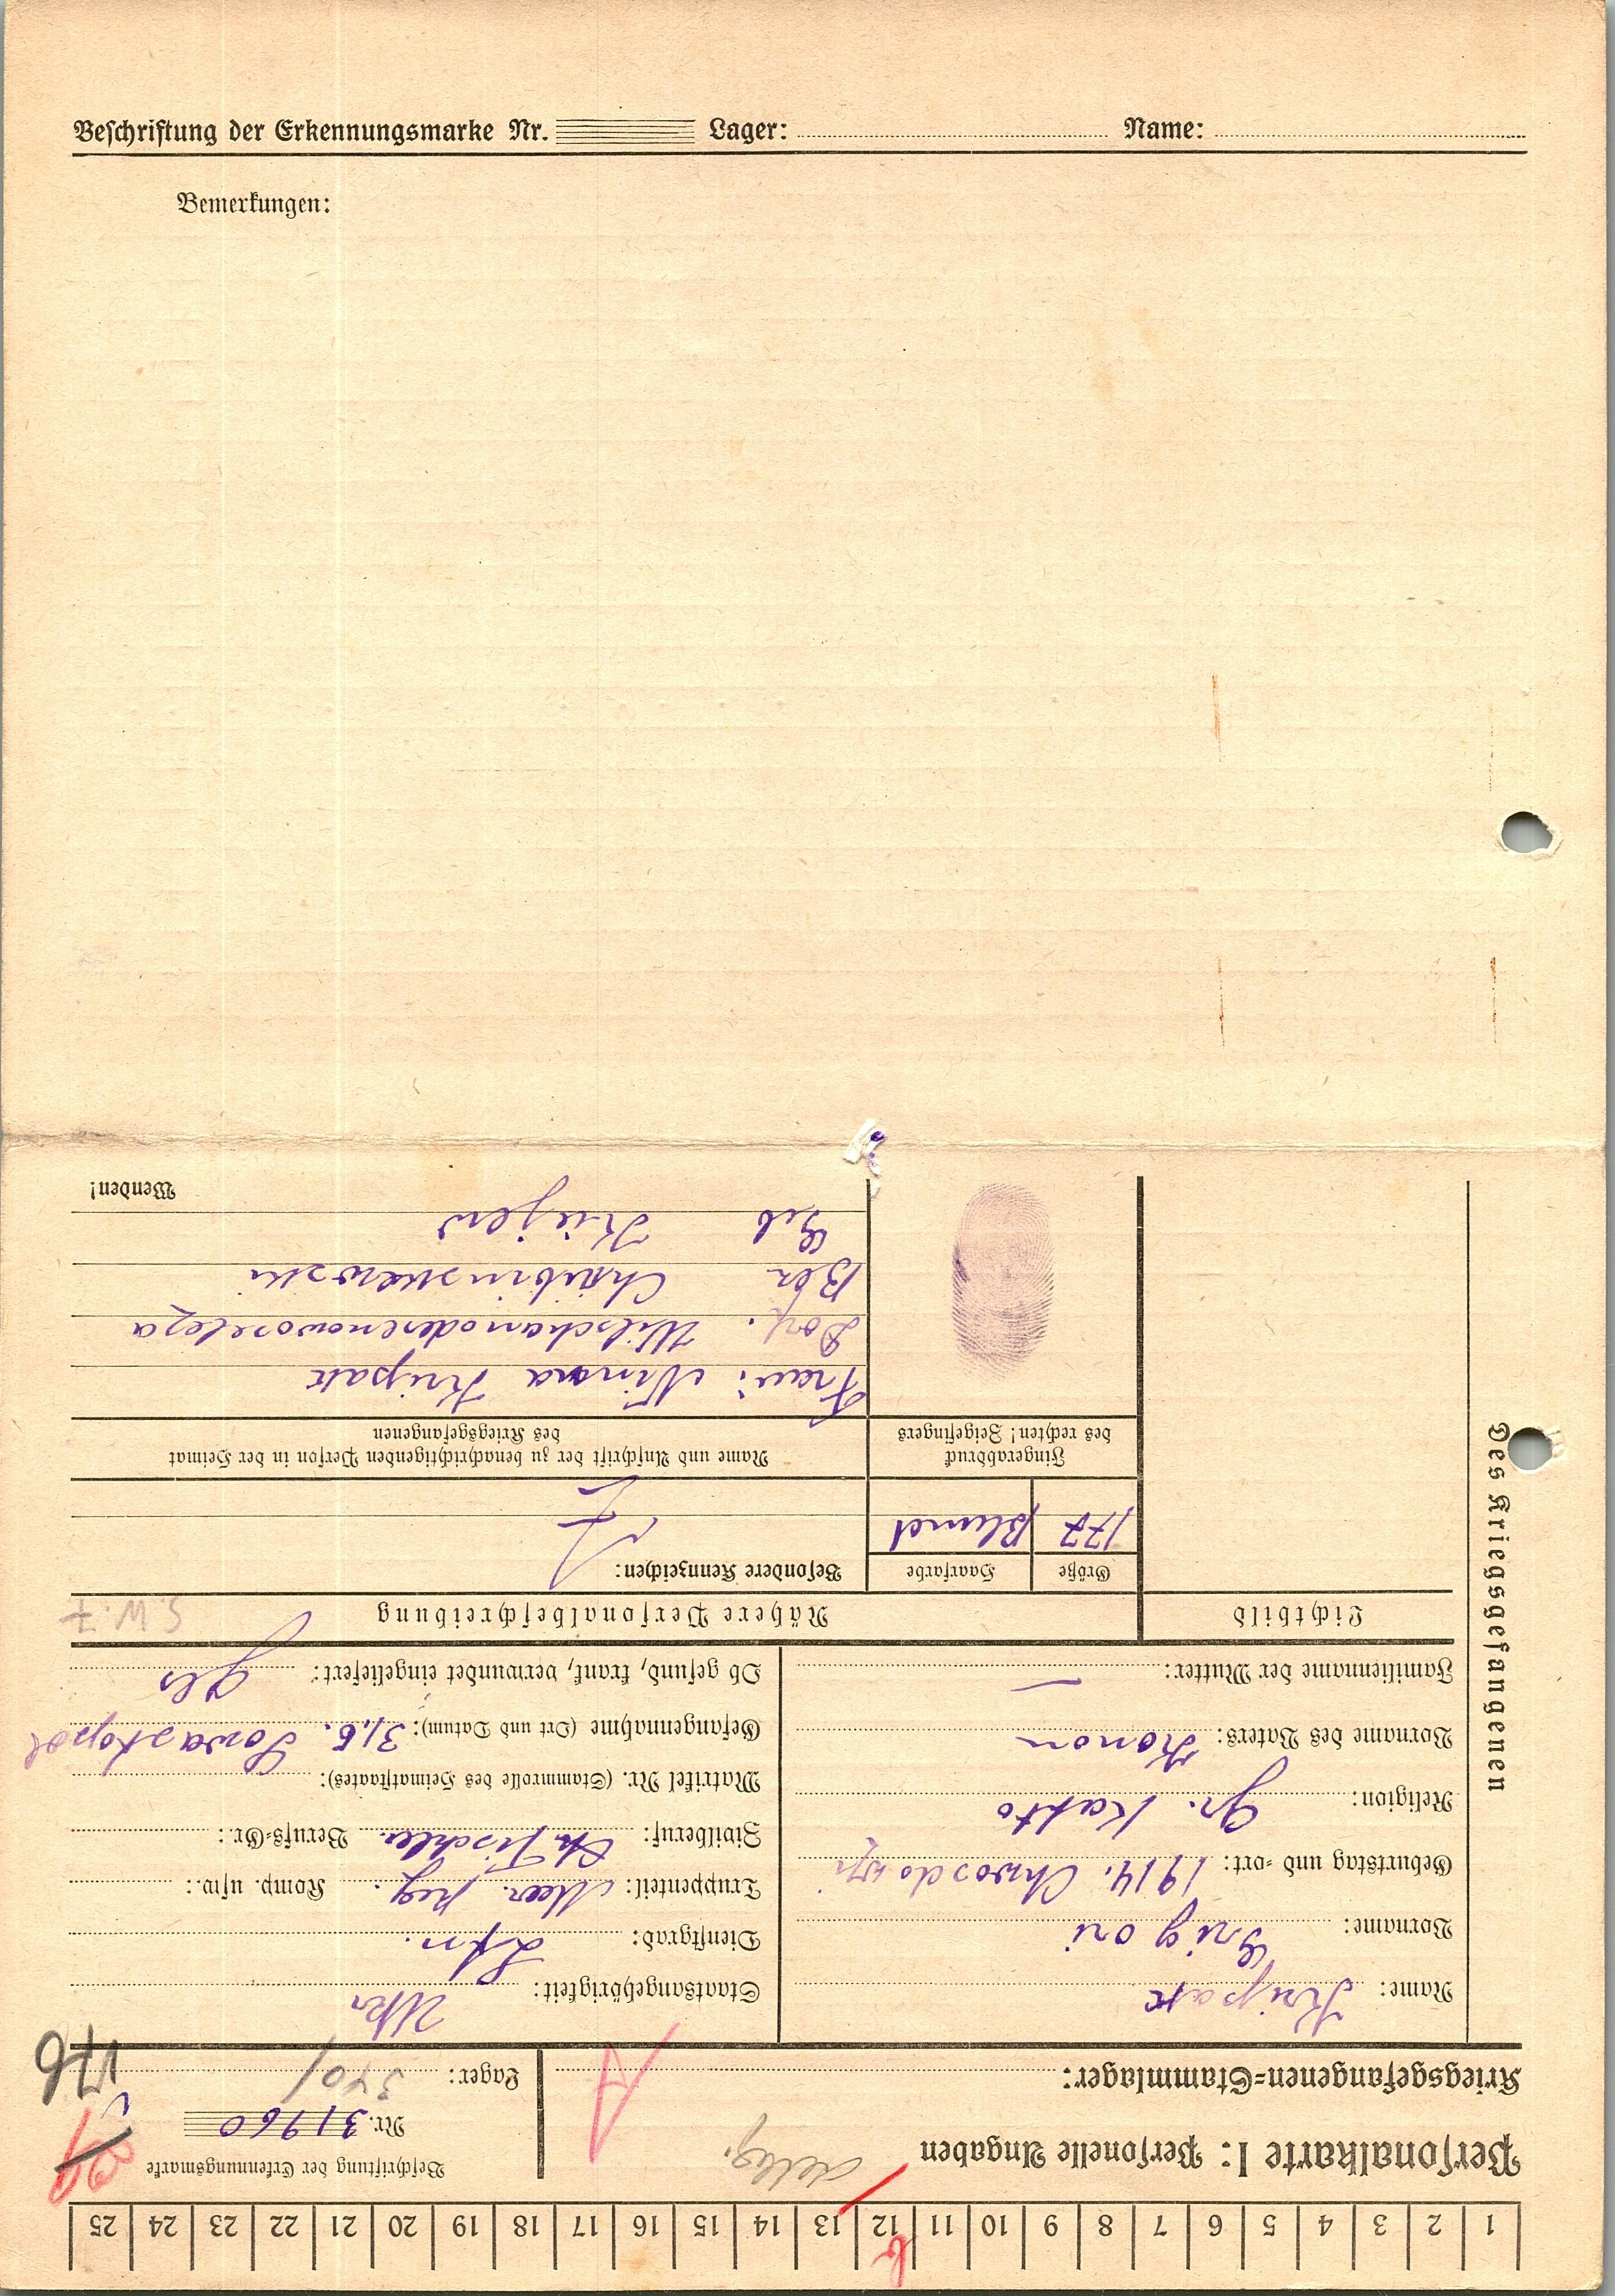 Beschriftung der Erkennungsmarke Nr. Lager: Name:
Bemerkungen:
1 2 3 4 5 6 7 8 9 10 11 12 13 14 15 16 17 18 19 20 21 22 23 24 25
Personalkarte I: Personelle Angaben
Beschriftung der Erkennungsmarke
Nr. 31960
Kriegsgefangenen=Stammlager: A
Lager: 340/
176
Des Kriegsgefangenen
Name: Kripak
Vorname: Grigori
Geburtstag und =ort: 1914. Chwosdowzi
Religion: Gr. Katto
Vorname des Vaters: Konon
Familienname der Mutter: —
Staatsangehörigkeit: Ukr
Dienstgrad: Ltn.
Truppenteil: Komp. usw.:
Zivilberuf: Tischler. Berufs=Gr.:
Matrikel Nr. (Stammrolle des Heimatstaates):
Gefangennahme (Ort und Datum): 31.6. Sowastopol
Ob gesund, krank, verwundet eingeliefert: Ges
Lichtbild
Nähere Personalbeschreibung
S.W.7
Größe Haarfarbe Besondere Kennzeichen:
177 Blund
Fingerabdruck
des rechten! Zeigefingers
Name und Anschrift der zu benachrichtigenden Person in der Heimat
des Kriegsgefangenen
Frau: Kripak
Dorf.
Geb Kiijew
Wenden!